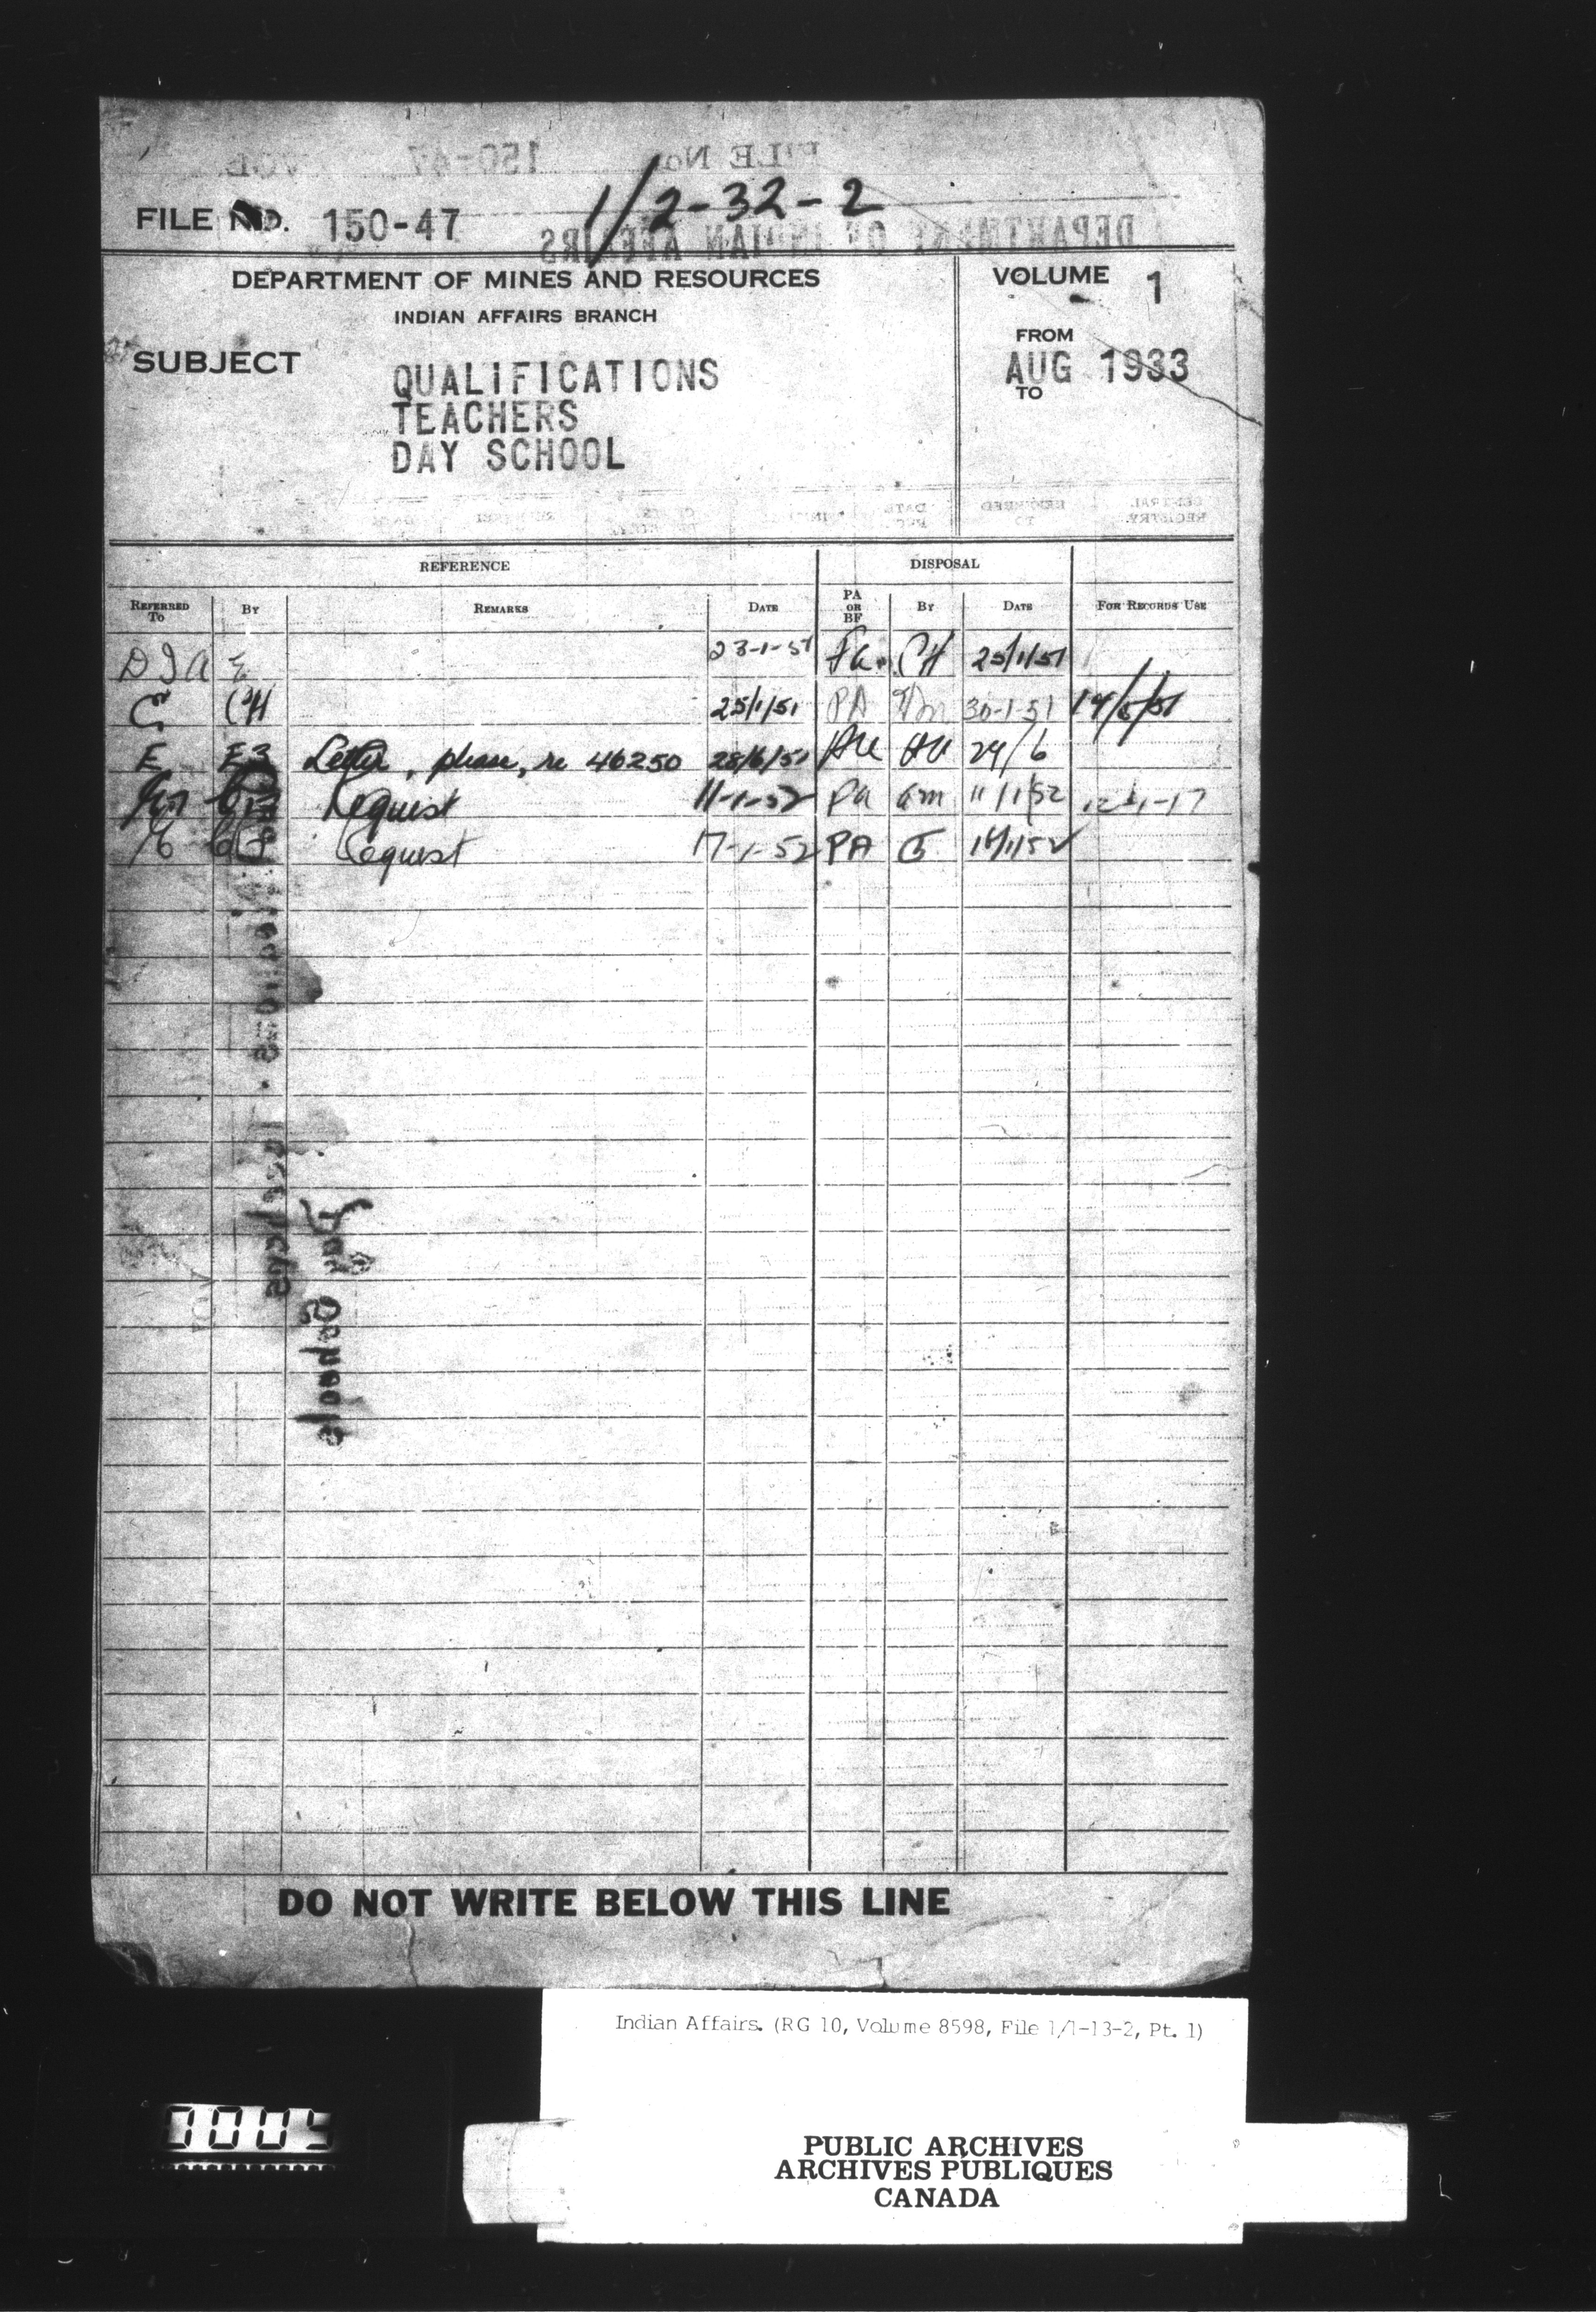 FILE NO. 150-47 1/2-32-2
DEPARTMENT OF MINES AND RESOURCES
INDIAN AFFAIRS BRANCH
VOLUME 1
FROM
AUG 1933
TO
SUBJECT
QUALIFICATIONS
TEACHERS
DAY SCHOOL
REFERENCE DISPOSAL
REFERRED TO BY REMARKS DATE PA OR BF BY DATE FOR RECORDS USE
D I A E 23-1-51 Pa. CH 25/1/51
E CH 25/1/51 PA 30-1-51
E E3 Letter, please, re 46250 28/6/51 29/6
Request 11-1-52 Pa am 11/1/52
Request 17-1-52 PA
Day Schools
DO NOT WRITE BELOW THIS LINE
Indian Affairs. (RG 10, Volume 8598, File 1/1-13-2, Pt. 1)
PUBLIC ARCHIVES
ARCHIVES PUBLIQUES
CANADA